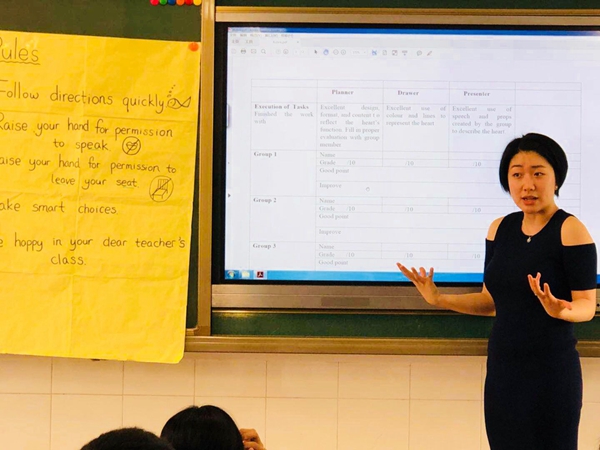 Rules
Follow directions quickly
Raise your hand for permission
to speak
Raise your hand for permission to
leave your seat
Make smart choices
Be happy in your dear teacher's
class.
Planner Drawer Presenter
Execution of Tasks Excellent design, Excellent use of Excellent use of
Finished the work format, and colour and lines to speech and props
with reflect the heart's represent the heart created by the group
function. Fill in proper to describe the heart
evaluation with group
member
Group 1 Name
Grade /10 /10 /10
Good point
Improve
Group 2 Name
Grade /10 /10 /10
Good point
Improve
Group 3 Name
Grade /10 /10 /10
Good point